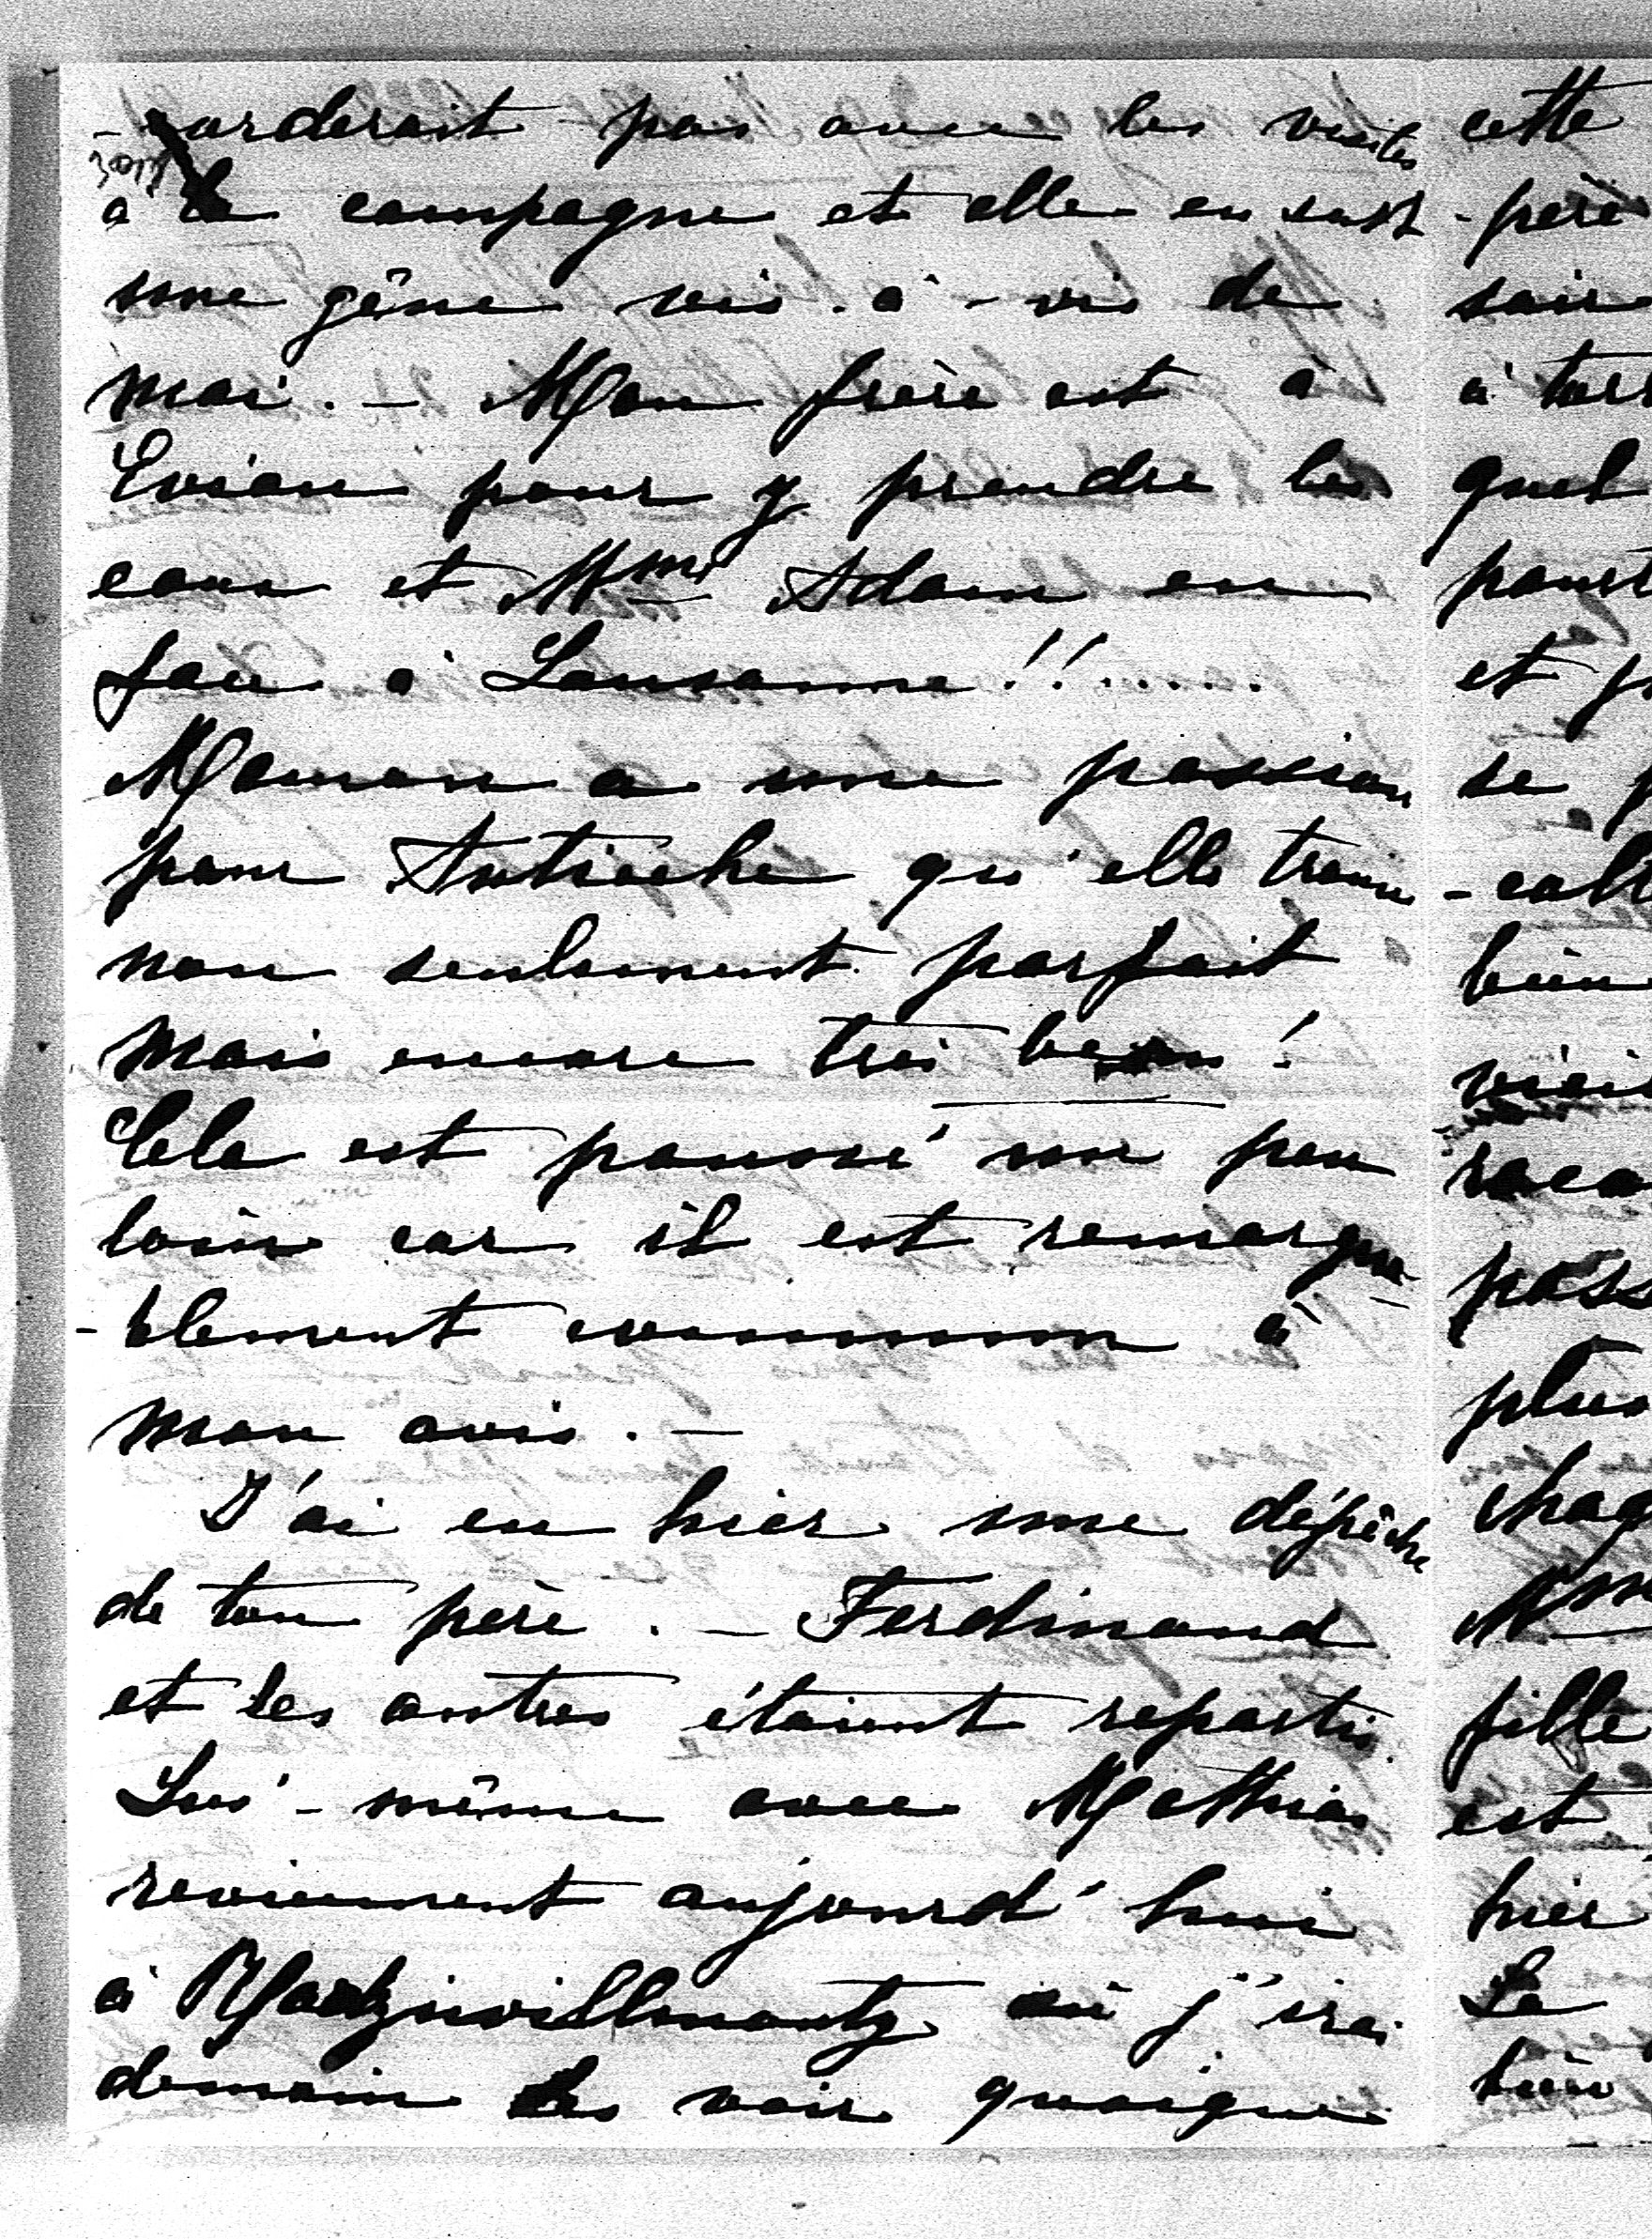 -corderait pas avec les visites
à la campagne et elle en sust
une gêne vis-à-vis de
moi. — Mon frère est à
Evian pour y prendre les
eaux et Mme Adam en
face à Lausanne !!......
Maman a une passion
pour Antioche qu'elle trouve
non seulement parfait
mais encore très beau !
Cela est poussé un peu
loin car il est remarqua-
-blement commun à
mon avis. —
J'ai eu hier une dépêche
de ton père. — Ferdinand
et les autres étaient repartis.
Lui-même avec Mathias
reviennent aujourd'hui
à où j'irai
demain les voir quoique
cette
-père
soir
à
quel
et
se
-coll
bien
viei
raco
pass
plus
chag
Mm
fille
est
hier
La
bien